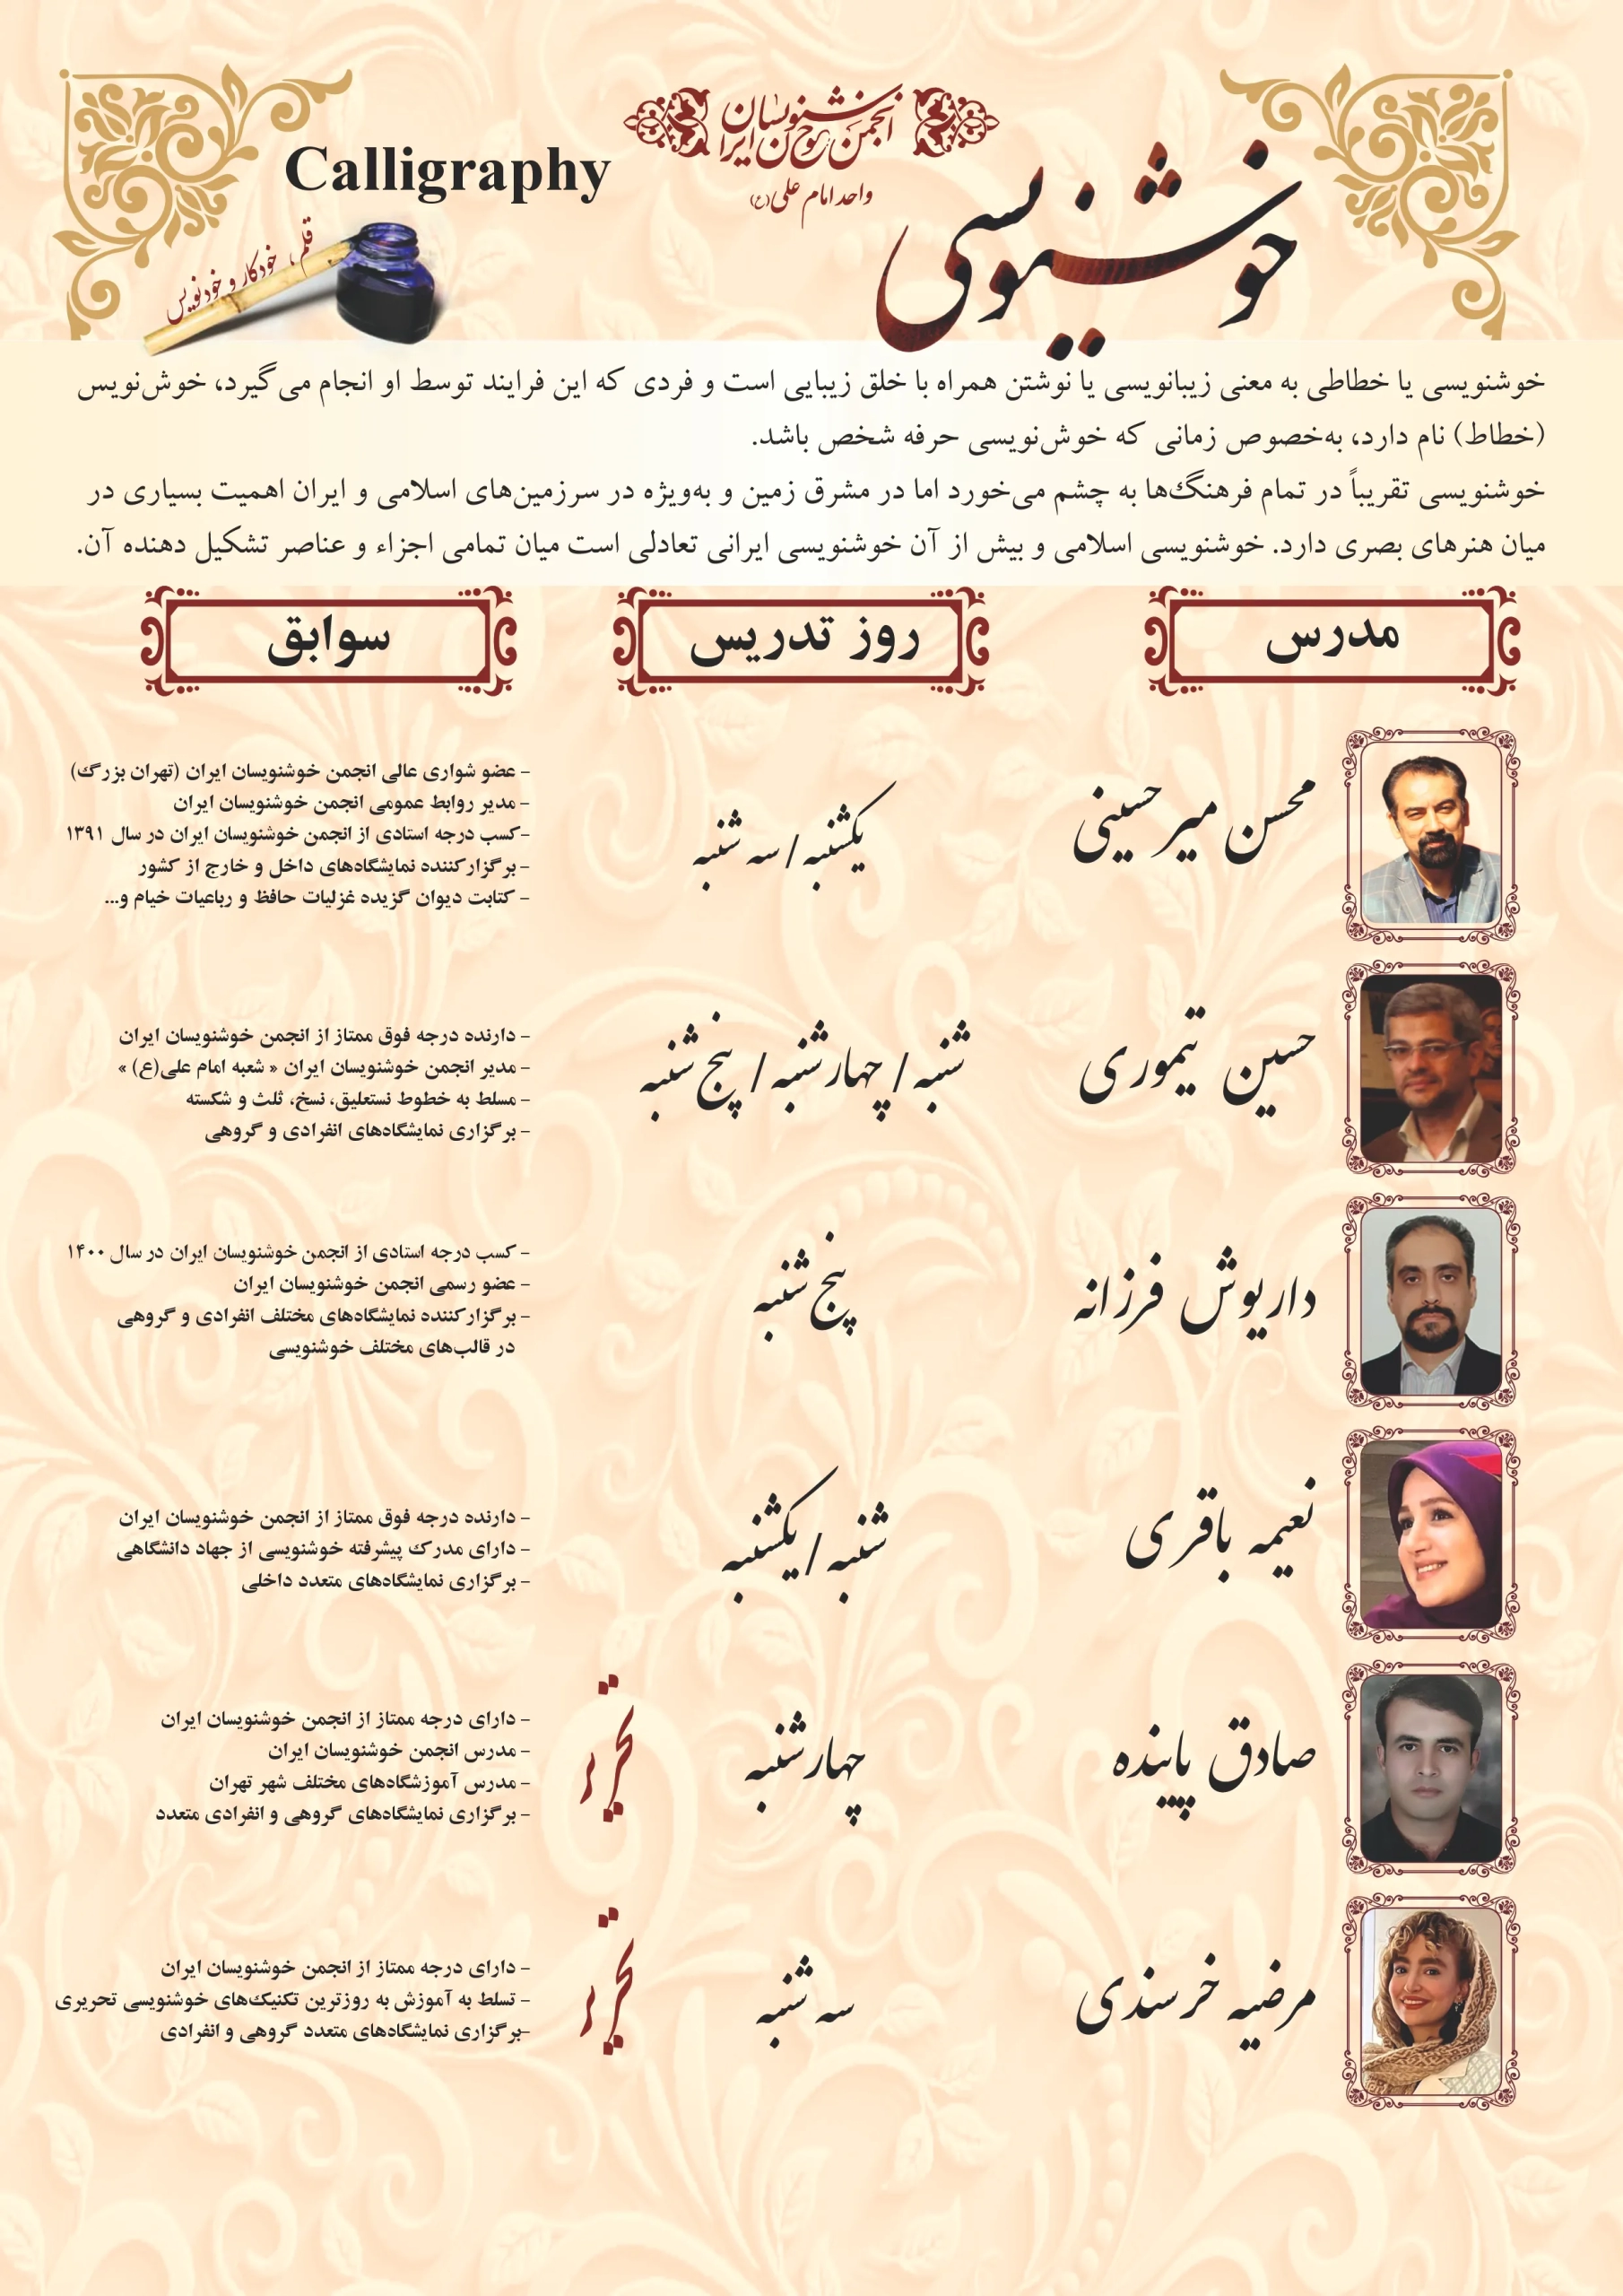 انجمن خوشنویسان ایران
واحد امام علی (ع)
خوشنویسی
Calligraphy
قلم، خودکار و خودنویس
خوشنویسی یا خطاطی به معنی زیبانویسی یا نوشتن همراه با خلق زیبایی است و فردی که این فرایند توسط او انجام می‌گیرد، خوش‌نویس
(خطاط) نام دارد، به‌خصوص زمانی که خوش‌نویسی حرفه شخص باشد.
خوشنویسی تقریباً در تمام فرهنگ‌ها به چشم می‌خورد اما در مشرق زمین و به‌ویژه در سرزمین‌های اسلامی و ایران اهمیت بسیاری در
میان هنرهای بصری دارد. خوشنویسی اسلامی و بیش از آن خوشنویسی ایرانی تعادلی است میان تمامی اجزاء و عناصر تشکیل دهنده آن.
مدرس
روز تدریس
سوابق
محسن میرحسینی
یکشنبه / سه شنبه
- عضو شواری عالی انجمن خوشنویسان ایران (تهران بزرگ)
- مدیر روابط عمومی انجمن خوشنویسان ایران
-کسب درجه استادی از انجمن خوشنویسان ایران در سال ۱۳۹۱
- برگزارکننده نمایشگاه‌های داخل و خارج از کشور
- کتابت دیوان گزیده غزلیات حافظ و رباعیات خیام و...
حسین تیموری
شنبه / چهارشنبه / پنج شنبه
- دارنده درجه فوق ممتاز از انجمن خوشنویسان ایران
- مدیر انجمن خوشنویسان ایران « شعبه امام علی(ع) »
- مسلط به خطوط نستعلیق، نسخ، ثلث و شکسته
- برگزاری نمایشگاه‌های انفرادی و گروهی
داریوش فرزانه
پنج شنبه
- کسب درجه استادی از انجمن خوشنویسان ایران در سال ۱۴۰۰
- عضو رسمی انجمن خوشنویسان ایران
- برگزارکننده نمایشگاه‌های مختلف انفرادی و گروهی
در قالب‌های مختلف خوشنویسی
نعیمه باقری
شنبه / یکشنبه
- دارنده درجه فوق ممتاز از انجمن خوشنویسان ایران
- دارای مدرک پیشرفته خوشنویسی از جهاد دانشگاهی
- برگزاری نمایشگاه‌های متعدد داخلی
صادق پاینده
چهارشنبه
تحریر
- دارای درجه ممتاز از انجمن خوشنویسان ایران
- مدرس انجمن خوشنویسان ایران
- مدرس آموزشگاه‌های مختلف شهر تهران
- برگزاری نمایشگاه‌های گروهی و انفرادی متعدد
مرضیه خرسندی
سه شنبه
تحریر
- دارای درجه ممتاز از انجمن خوشنویسان ایران
- تسلط به آموزش به روزترین تکنیک‌های خوشنویسی تحریری
-برگزاری نمایشگاه‌های متعدد گروهی و انفرادی